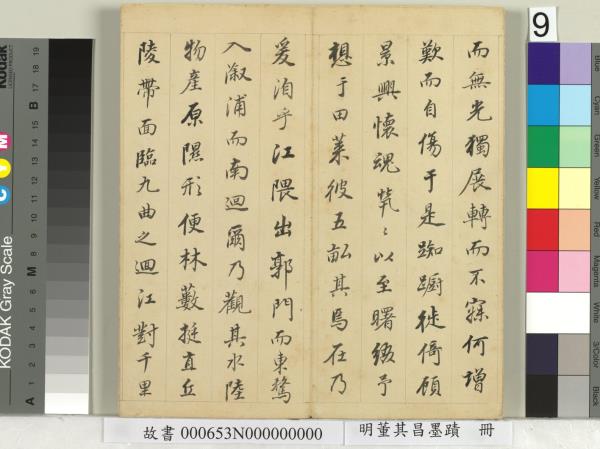 而無光獨展轉而不寐何增
歎而自傷于是踟躕徙倚顧
景興懷魂煢〻以至曙緬予
想于田萊彼五畝其焉在乃
爰洎乎江隈出郭門而東騖
入漵浦而南迴爾乃觀其水陸
物產原隰形便林藪挺直丘
陵帶面臨九曲之迴江對千里
故書 000653N000000000
明董其昌墨蹟 冊
9
Blue
Cyan
Green
Yellow
Red
Magenta
White
3/Color
Black
KODAK Gray Scale
Kodak
C Y M
A 1 2 3 4 5 6 M 8 9 10 11 12 13 14 15 B 17 18 19